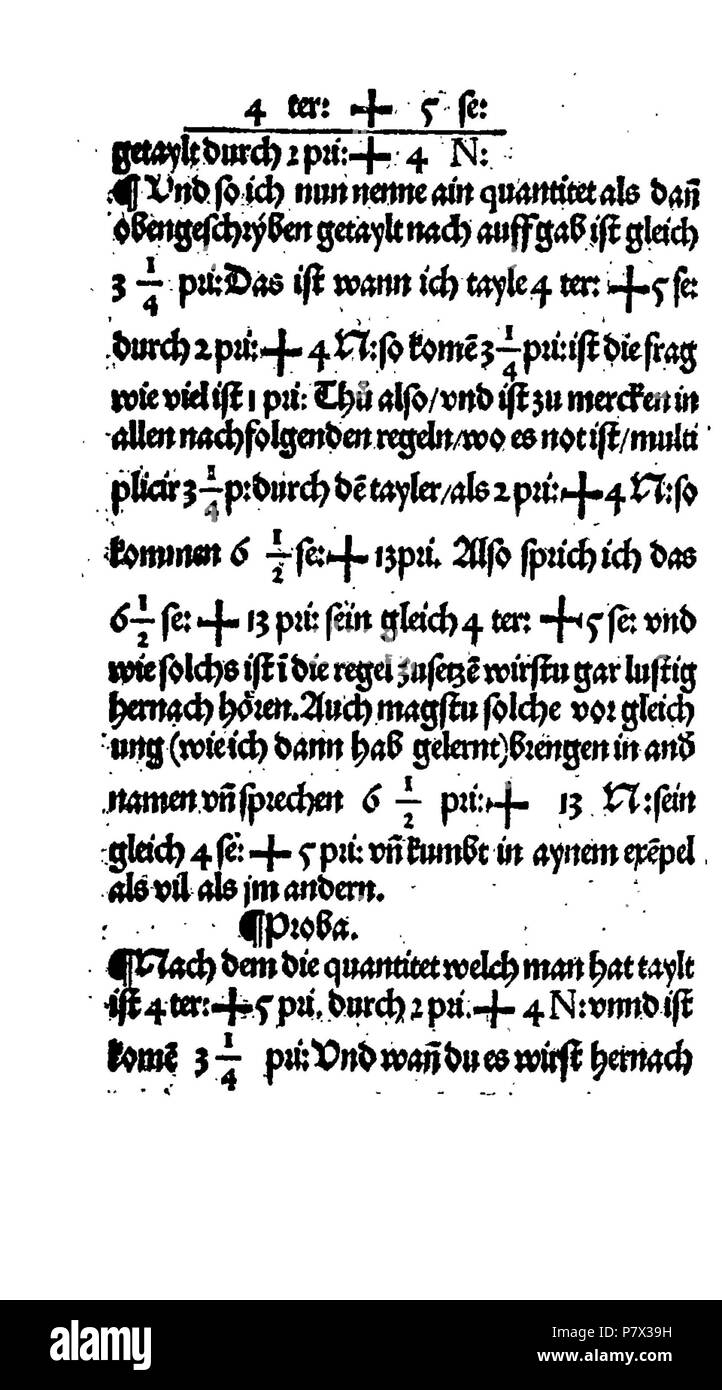 4 ter: + 5 se:
getaylt durch 2 pri: + 4 N:
¶ Vnd so ich nun nenne ain quantitet als dañ
obengeschryben getaylt nach auffgab ist gleich
3 1/4 pri: Das ist wann ich tayle 4 ter: + 5 se:
durch 2 pri: + 4 N: so komē 3 1/4 pri: ist die frag
wie viel ist 1 pri: Thů also/vnd ist zu mercken in
allen nachfolgenden regeln/wo es not ist/multi
plicir 3 1/4 p: durch dē tayler/als 2 pri: + 4 N: so
kommen 6 1/2 se: + 13 pri. Also sprich ich das
6 1/2 se: + 13 pri: sein gleich 4 ter: + 5 se: vnd
wie solchs ist ī die regel zusetzē wirstu gar lustig
hernach hören. Auch magstu solche vor gleich
ung (wie ich dann hab gelernt) brengen in and
namen vñ sprechen 6 1/2 pri: + 13 N: sein
gleich 4 se: + 5 pri: vñ kumbt in aynem exēpel
als vil als jm andern.
¶ Proba.
¶ Nach dem die quantitet welch man hat taylt
ist 4 ter: + 5 pri. durch 2 pri. + 4 N: vnnd ist
komē 3 1/4 pri: Vnd wañ du es wirst hernach
alamy
Image ID: P7X39H
www.alamy.com